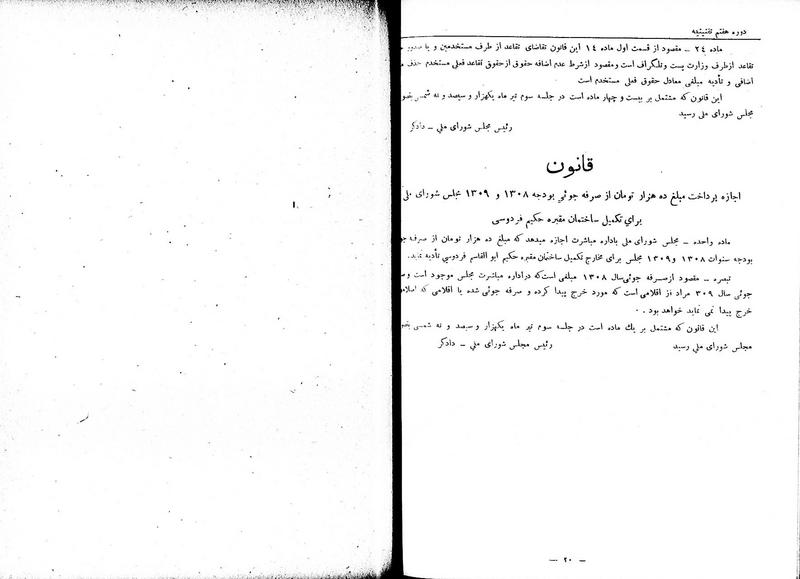 دوره هفتم تقنینیه
ماده ۲۴ ــ مقصود از قسمت اول ماده ۱۴ این قانون تقاضای تقاعد از طرف مستخدمین و یا صدور
تقاعد ازطرف وزارت پست وتلگراف است ومقصود ازشرط عدم اضافه حقوق ازحقوق تقاعد فعلی مستخدم حذف
اضافی و تأدیه مبلغی معادل حقوق فعلی مستخدم است
این قانون که مشتمل بر بیست و چهار ماده است در جلسه سوم تیر ماه یکهزار و سیصد و نه شمسی
مجلس شورای ملی رسید
رئیس مجلس شورای ملی ــ دادگر
قانون
اجازه پرداخت مبلغ ده هزار تومان از صرفه جوئی بودجه ۱۳۰۸ و ۱۳۰۹ مجلس شورای
برای تکمیل ساختمان مقبره حکیم فردوسی
ماده واحده ــ مجلس شورای ملی باداره مباشرت اجازه میدهد که مبلغ ده هزار تومان از صرفه
بودجه سنوات ۱۳۰۸ و۱۳۰۹ مجلس برای مخارج تکمیل ساختمان مقبره حکیم ابوالقاسم فردوسی تأدیه نماید.
تبصره ــ مقصود ازصرفه جوئی‌سال ۱۳۰۸ مبلغی است‌که دراداره مباشرت مجلس موجود است
جوئی سال ۳۰۹ مراد از اقلامی است که مورد خرج پیدا کرده و صرفه جوئی شده یا اقلامی که
خرج پیدا نمی نماید خواهد بود .
این قانون که مشتمل بر یك ماده است در جلسه سوم تیر ماه یکهزار و سیصد و نه شمسی
مجلس شورای ملی رسید
رئیس مجلس شورای ملی ــ دادگر
ــ ۲۰ ــ